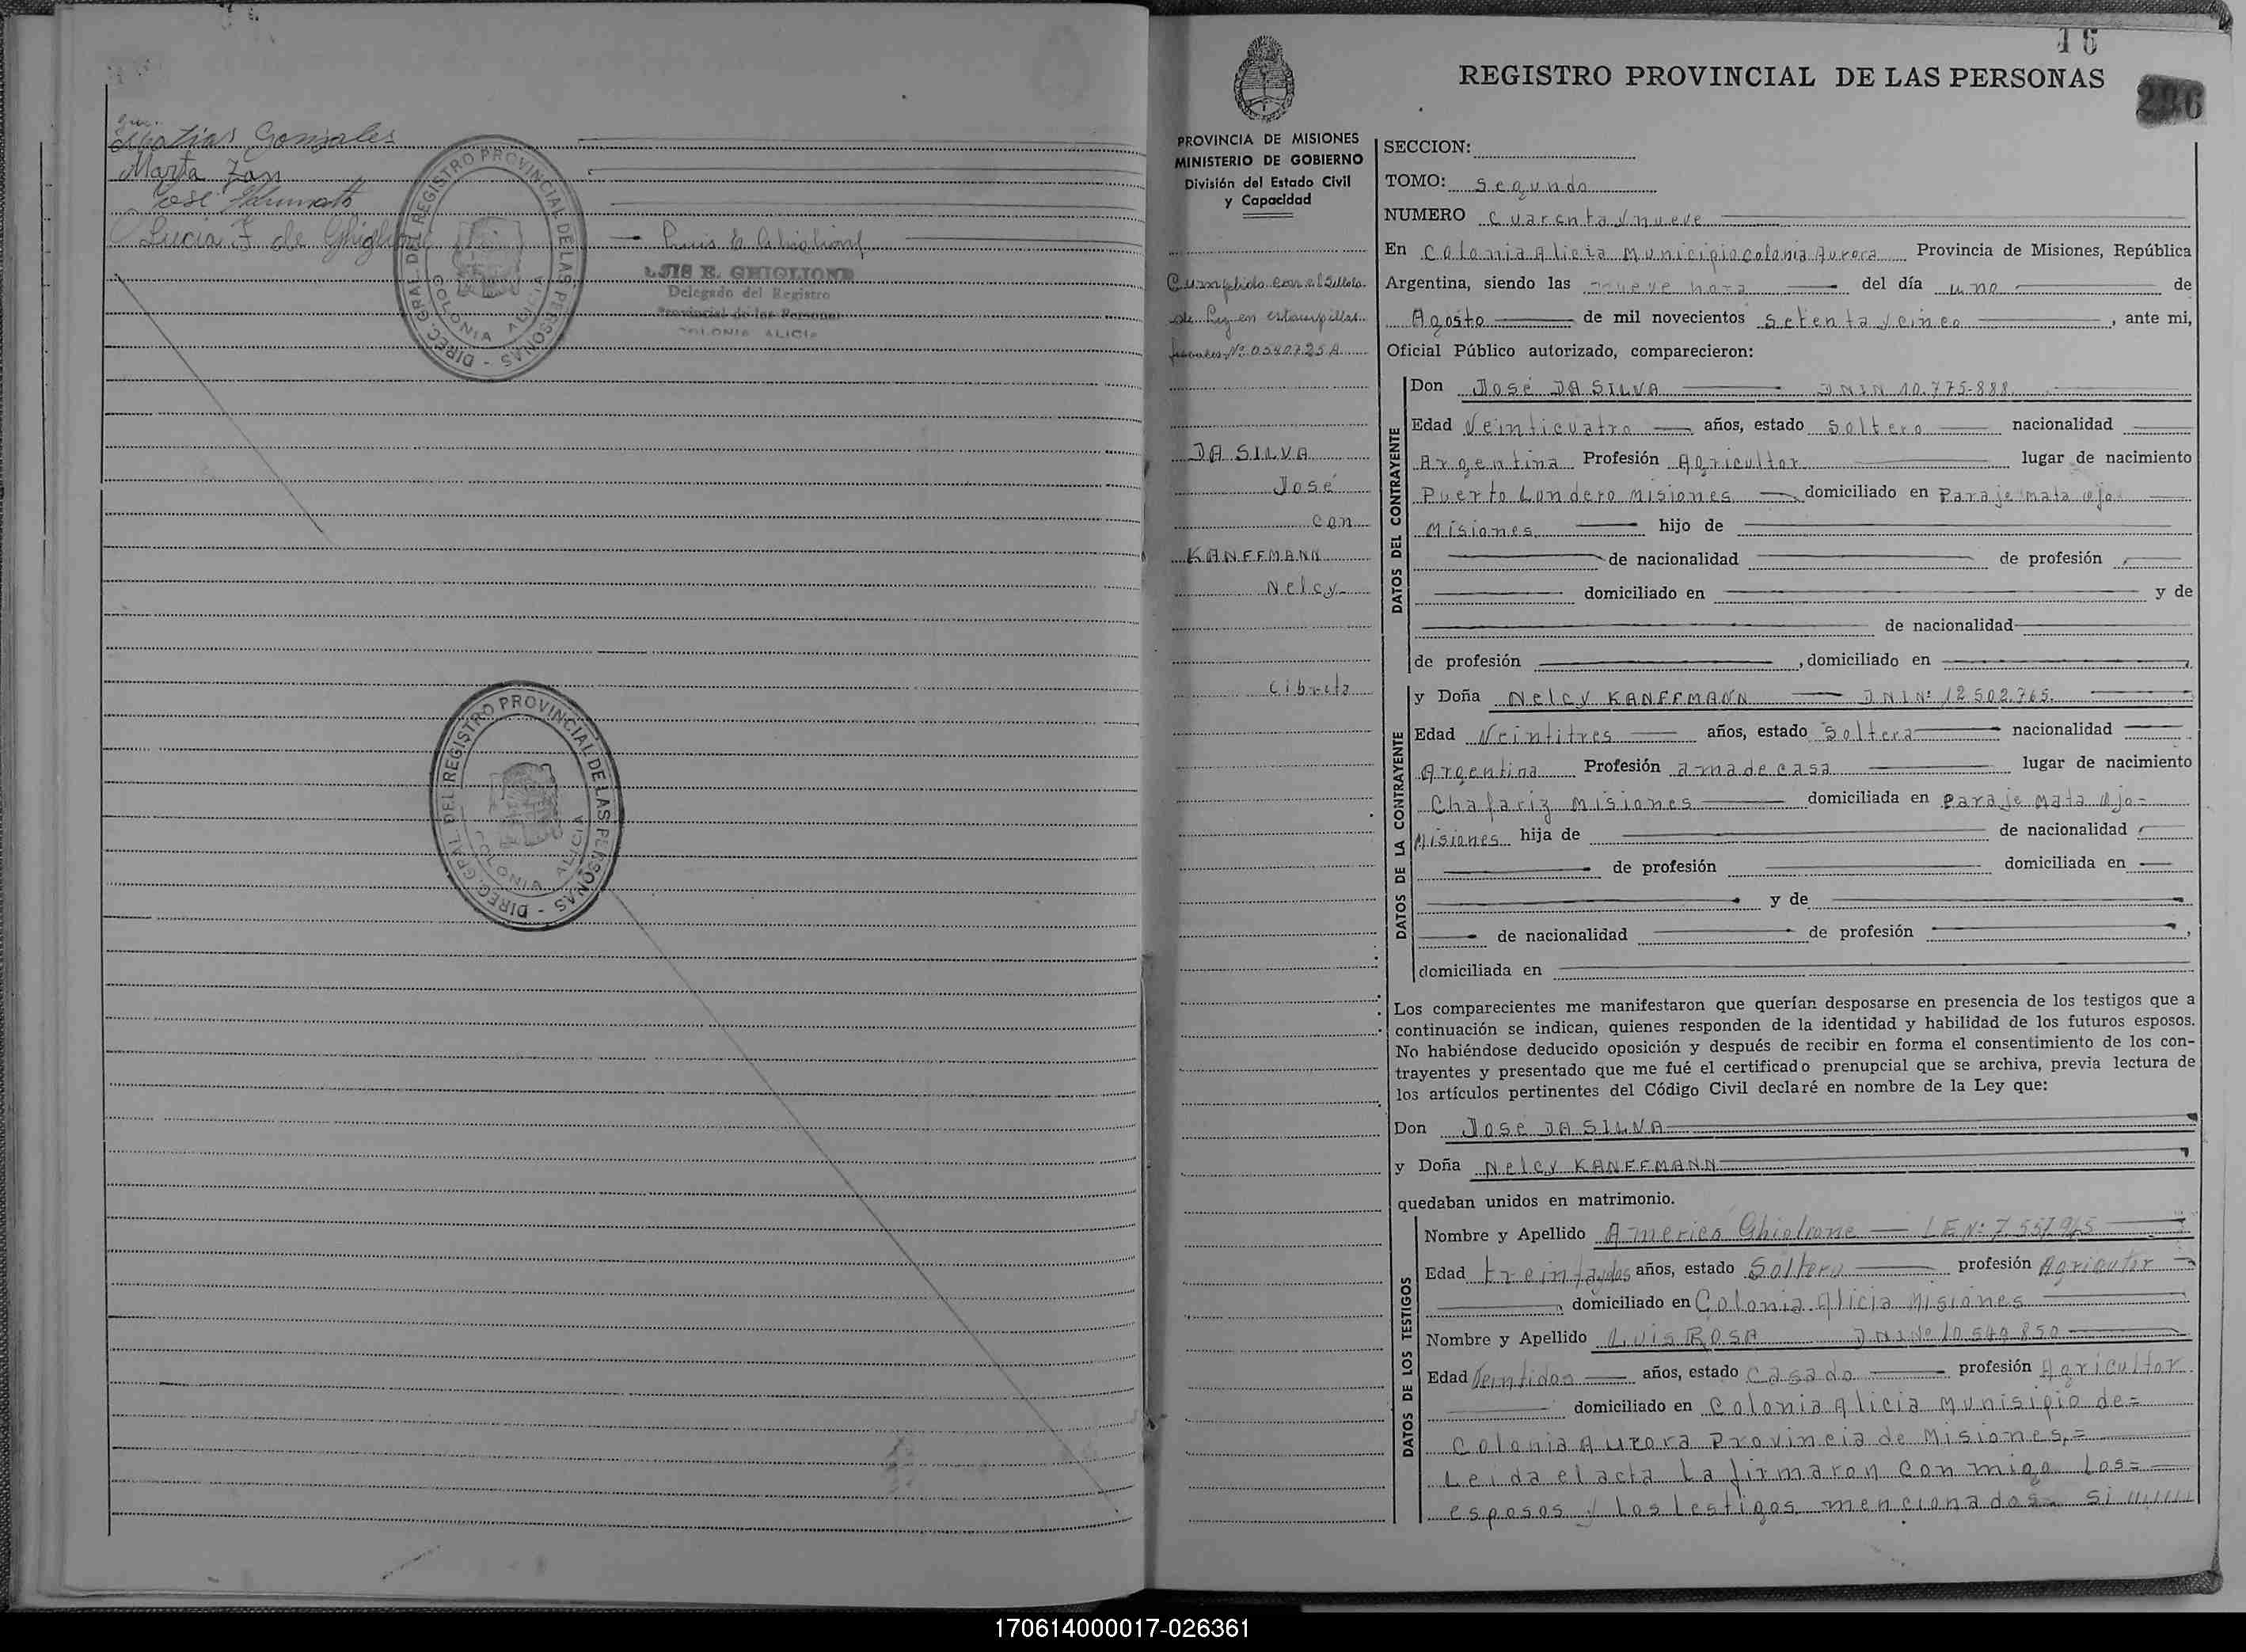 Matias Gonzales
Marta Zan
José
Lucia F. de Ghiglione
Luis E. Ghiglione
LUIS E. GHIGLIONE
Delegado del Registro
Provincial de las Personas
COLONIA ALICIA
DIREC. GRAL. DEL REGISTRO PROVINCIAL DE LAS PERSONAS -
COLONIA ALICIA
DIREC. GRAL. DEL REGISTRO PROVINCIAL DE LAS PERSONAS -
COLONIA ALICIA
16
REGISTRO PROVINCIAL DE LAS PERSONAS
296
PROVINCIA DE MISIONES
MINISTERIO DE GOBIERNO
División del Estado Civil
y Capacidad
Cumplido con el Sellado
de Ley en estampillas
fiscales Nº 0580725 A
DA SILVA
José
con
KANFFMANN
Nelcy
Libreta
SECCION:
TOMO: Segundo
NUMERO cuarenta y nueve
En Colonia Alicia Municipio Colonia Aurora Provincia de Misiones, República
Argentina, siendo las nueve hora del día uno de
Agosto de mil novecientos setenta y cinco, ante mi,
Oficial Público autorizado, comparecieron:
DATOS DEL CONTRAYENTE
Don José DA SILVA DNIN 10.775-888
Edad Veinticuatro años, estado Soltero nacionalidad
Argentina Profesión Agricultor lugar de nacimiento
Puerto Londero Misiones domiciliado en Paraje mata ojo
Misiones hijo de
de nacionalidad de profesión
domiciliado en y de
de nacionalidad
de profesión , domiciliado en
DATOS DE LA CONTRAYENTE
y Doña Nelcy KANFFMANN DNINº 12.502.765
Edad Veintitres años, estado Soltera nacionalidad
Argentina Profesión ama de casa lugar de nacimiento
Chafariz Misiones domiciliada en paraje Mata Ojo=
Misiones hija de de nacionalidad
de profesión domiciliada en
y de
de nacionalidad de profesión ,
domiciliada en
Los comparecientes me manifestaron que querían desposarse en presencia de los testigos que a
continuación se indican, quienes responden de la identidad y habilidad de los futuros esposos.
No habiéndose deducido oposición y después de recibir en forma el consentimiento de los con-
trayentes y presentado que me fué el certificado prenupcial que se archiva, previa lectura de
los artículos pertinentes del Código Civil declaré en nombre de la Ley que:
Don Jose DA SILVA
y Doña Nelcy KANFFMANN
quedaban unidos en matrimonio.
DATOS DE LOS TESTIGOS
Nombre y Apellido Americo Ghiolione LE Nº 7.557.965
Edad treinta y dos años, estado Soltero profesión Agricutor
domiciliado en Colonia Alicia Misiones
Nombre y Apellido Luis ROSA DNINº 10.540.850
Edad Veintidos años, estado Casado profesión Agricultor
domiciliado en Colonia Alicia Munisipio de=
Colonia Aurora Provincia de Misiones,=
Leida el acta La firmaron con migo Los=
esposos y Los testigos mencionados si
170614000017-026361